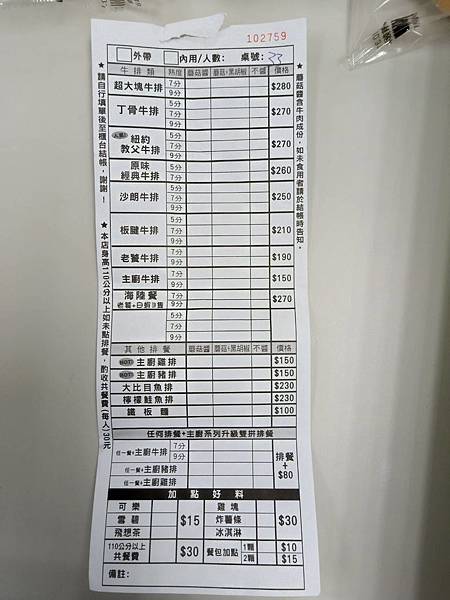 102759
外帶 內用/人數: 桌號: 33
牛排類 熟度 蘑菇醬 蘑菇+黑胡椒 不醬 價格
超大塊牛排 7分 9分 $280
丁骨牛排 5分 7分 9分 $270
紐約教父牛排 5分 7分 9分 $270
原味經典牛排 5分 7分 9分 $260
沙朗牛排 5分 7分 9分 $250
板腱牛排 5分 7分 9分 $210
老饕牛排 7分 9分 $190
主廚牛排 7分 9分 $150
海陸餐 7分 $270
老饕+白蝦3隻 9分
5分
7分
9分
其他排餐 蘑菇醬 蘑菇+黑胡椒 不醬 價格
HOT! 主廚雞排 $150
HOT! 主廚豬排 $150
大比目魚排 $230
檸檬鮭魚排 $230
鐵板麵 $100
任何排餐+主廚系列升級雙拼排餐
任一餐+主廚牛排 7分 9分
任一餐+主廚豬排
任一餐+主廚雞排
排餐+$80
加點好料
可樂 雞塊
雪碧 $15 炸薯條 $30
飛想茶 冰淇淋
110公分以上共餐費 $30 餐包加點 1顆 $10
2顆 $15
備註:
★請自行填單後至櫃台結帳,謝謝!
★本店身高110公分以上如未點排餐,酌收共餐費(每人)30元
★蘑菇醬含牛肉成份,如未食用者請於結帳時告知。